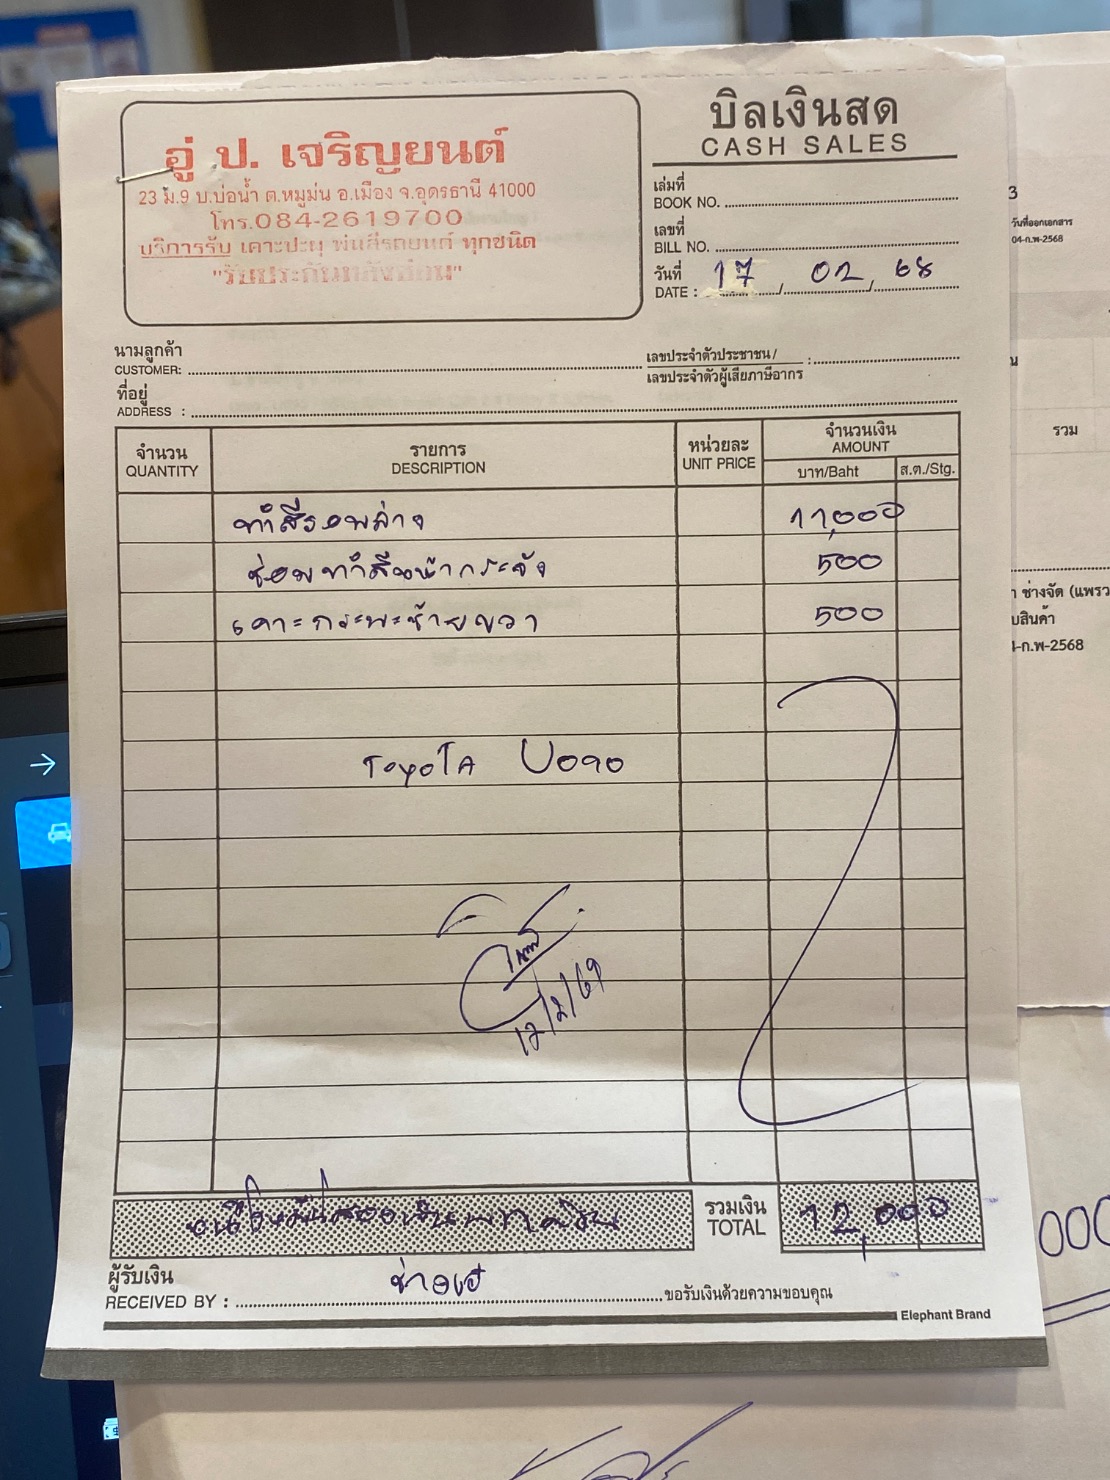 บิลเงินสด
CASH SALES
อู่ ป. เจริญยนต์
23 ม.9 บ.บ่อน้ำ ต.หมูม่น อ.เมือง จ.อุดรธานี 41000
โทร.084-2619700
บริการรับ เคาะปะผุ พ่นสีรถยนต์ ทุกชนิด
"รับประกันหลังซ่อม"
เล่มที่
BOOK NO.
เลขที่
BILL NO.
วันที่
DATE : 17 / 02 / 68
นามลูกค้า
CUSTOMER:
เลขประจำตัวประชาชน/ :
เลขประจำตัวผู้เสียภาษีอากร
ที่อยู่
ADDRESS :
จำนวน
QUANTITY
รายการ
DESCRIPTION
หน่วยละ
UNIT PRICE
จำนวนเงิน
AMOUNT
บาท/Baht
ส.ต./Stg.
ทำสีรอบล่าง 11,000
ซ่อมทำสีหน้ากระจัง 500
เคาะกระพะซ้ายขวา 500
TOYOTA
12/2/69
รวมเงิน
TOTAL
12,000
ผู้รับเงิน
RECEIVED BY : ช่าง
ขอรับเงินด้วยความขอบคุณ
Elephant Brand
3
วันที่ออกเอกสาร
04-ก.พ-2568
รวม
ช่างจัด (แพรว
บสินค้า
ก.พ-2568
000